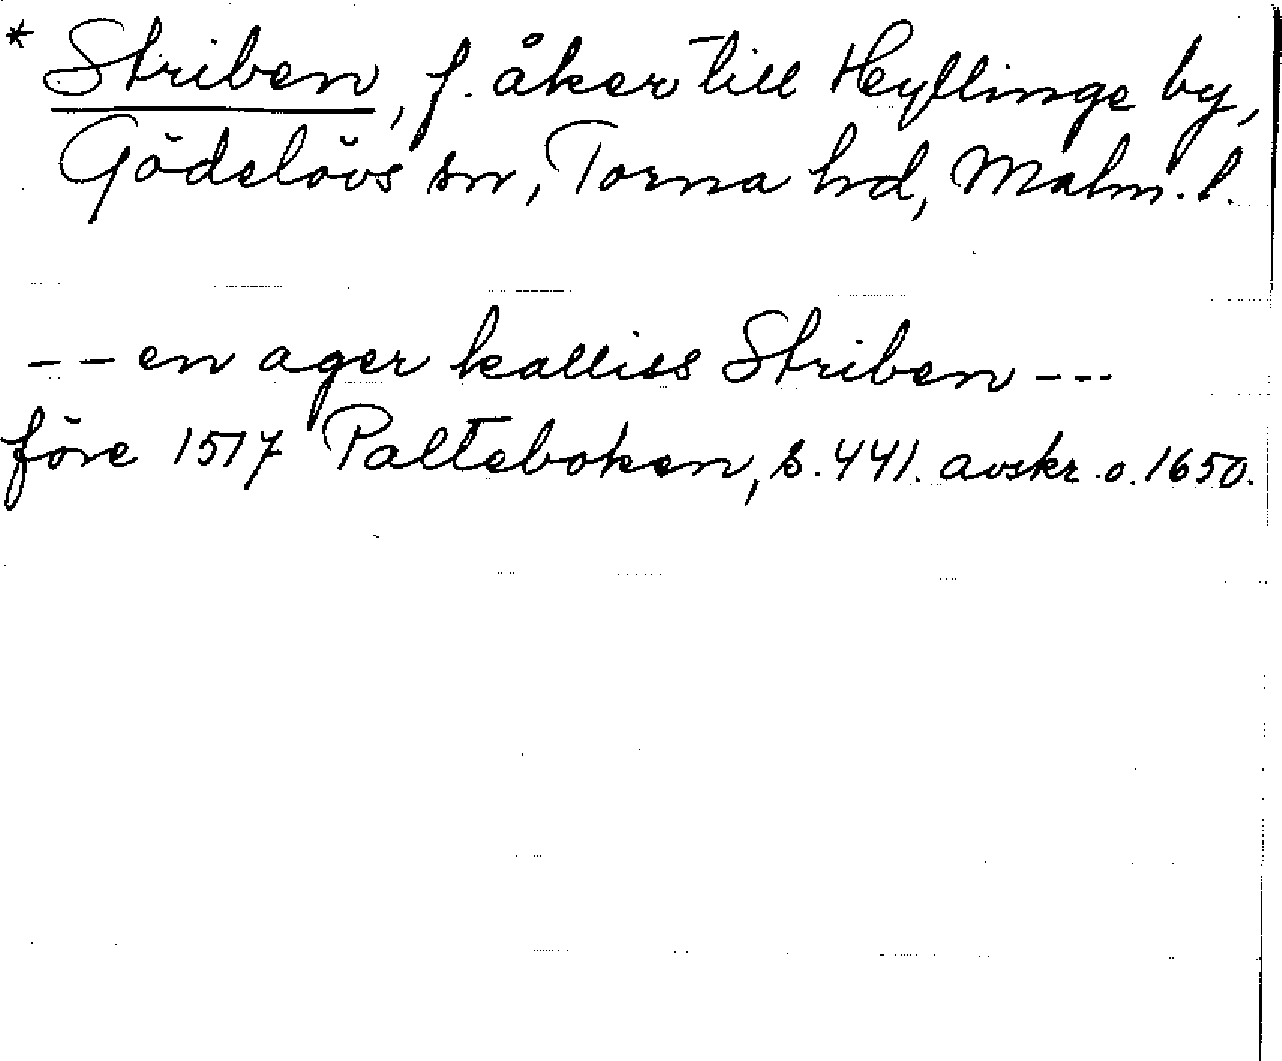 * Striben, f. åker till Heyllinge by,
Gödelövs sn, Torna hd, Malm. l.
-- en ager kalliss Striben ---
före 1517 Palteboken, s. 441. avskr. o. 1650.